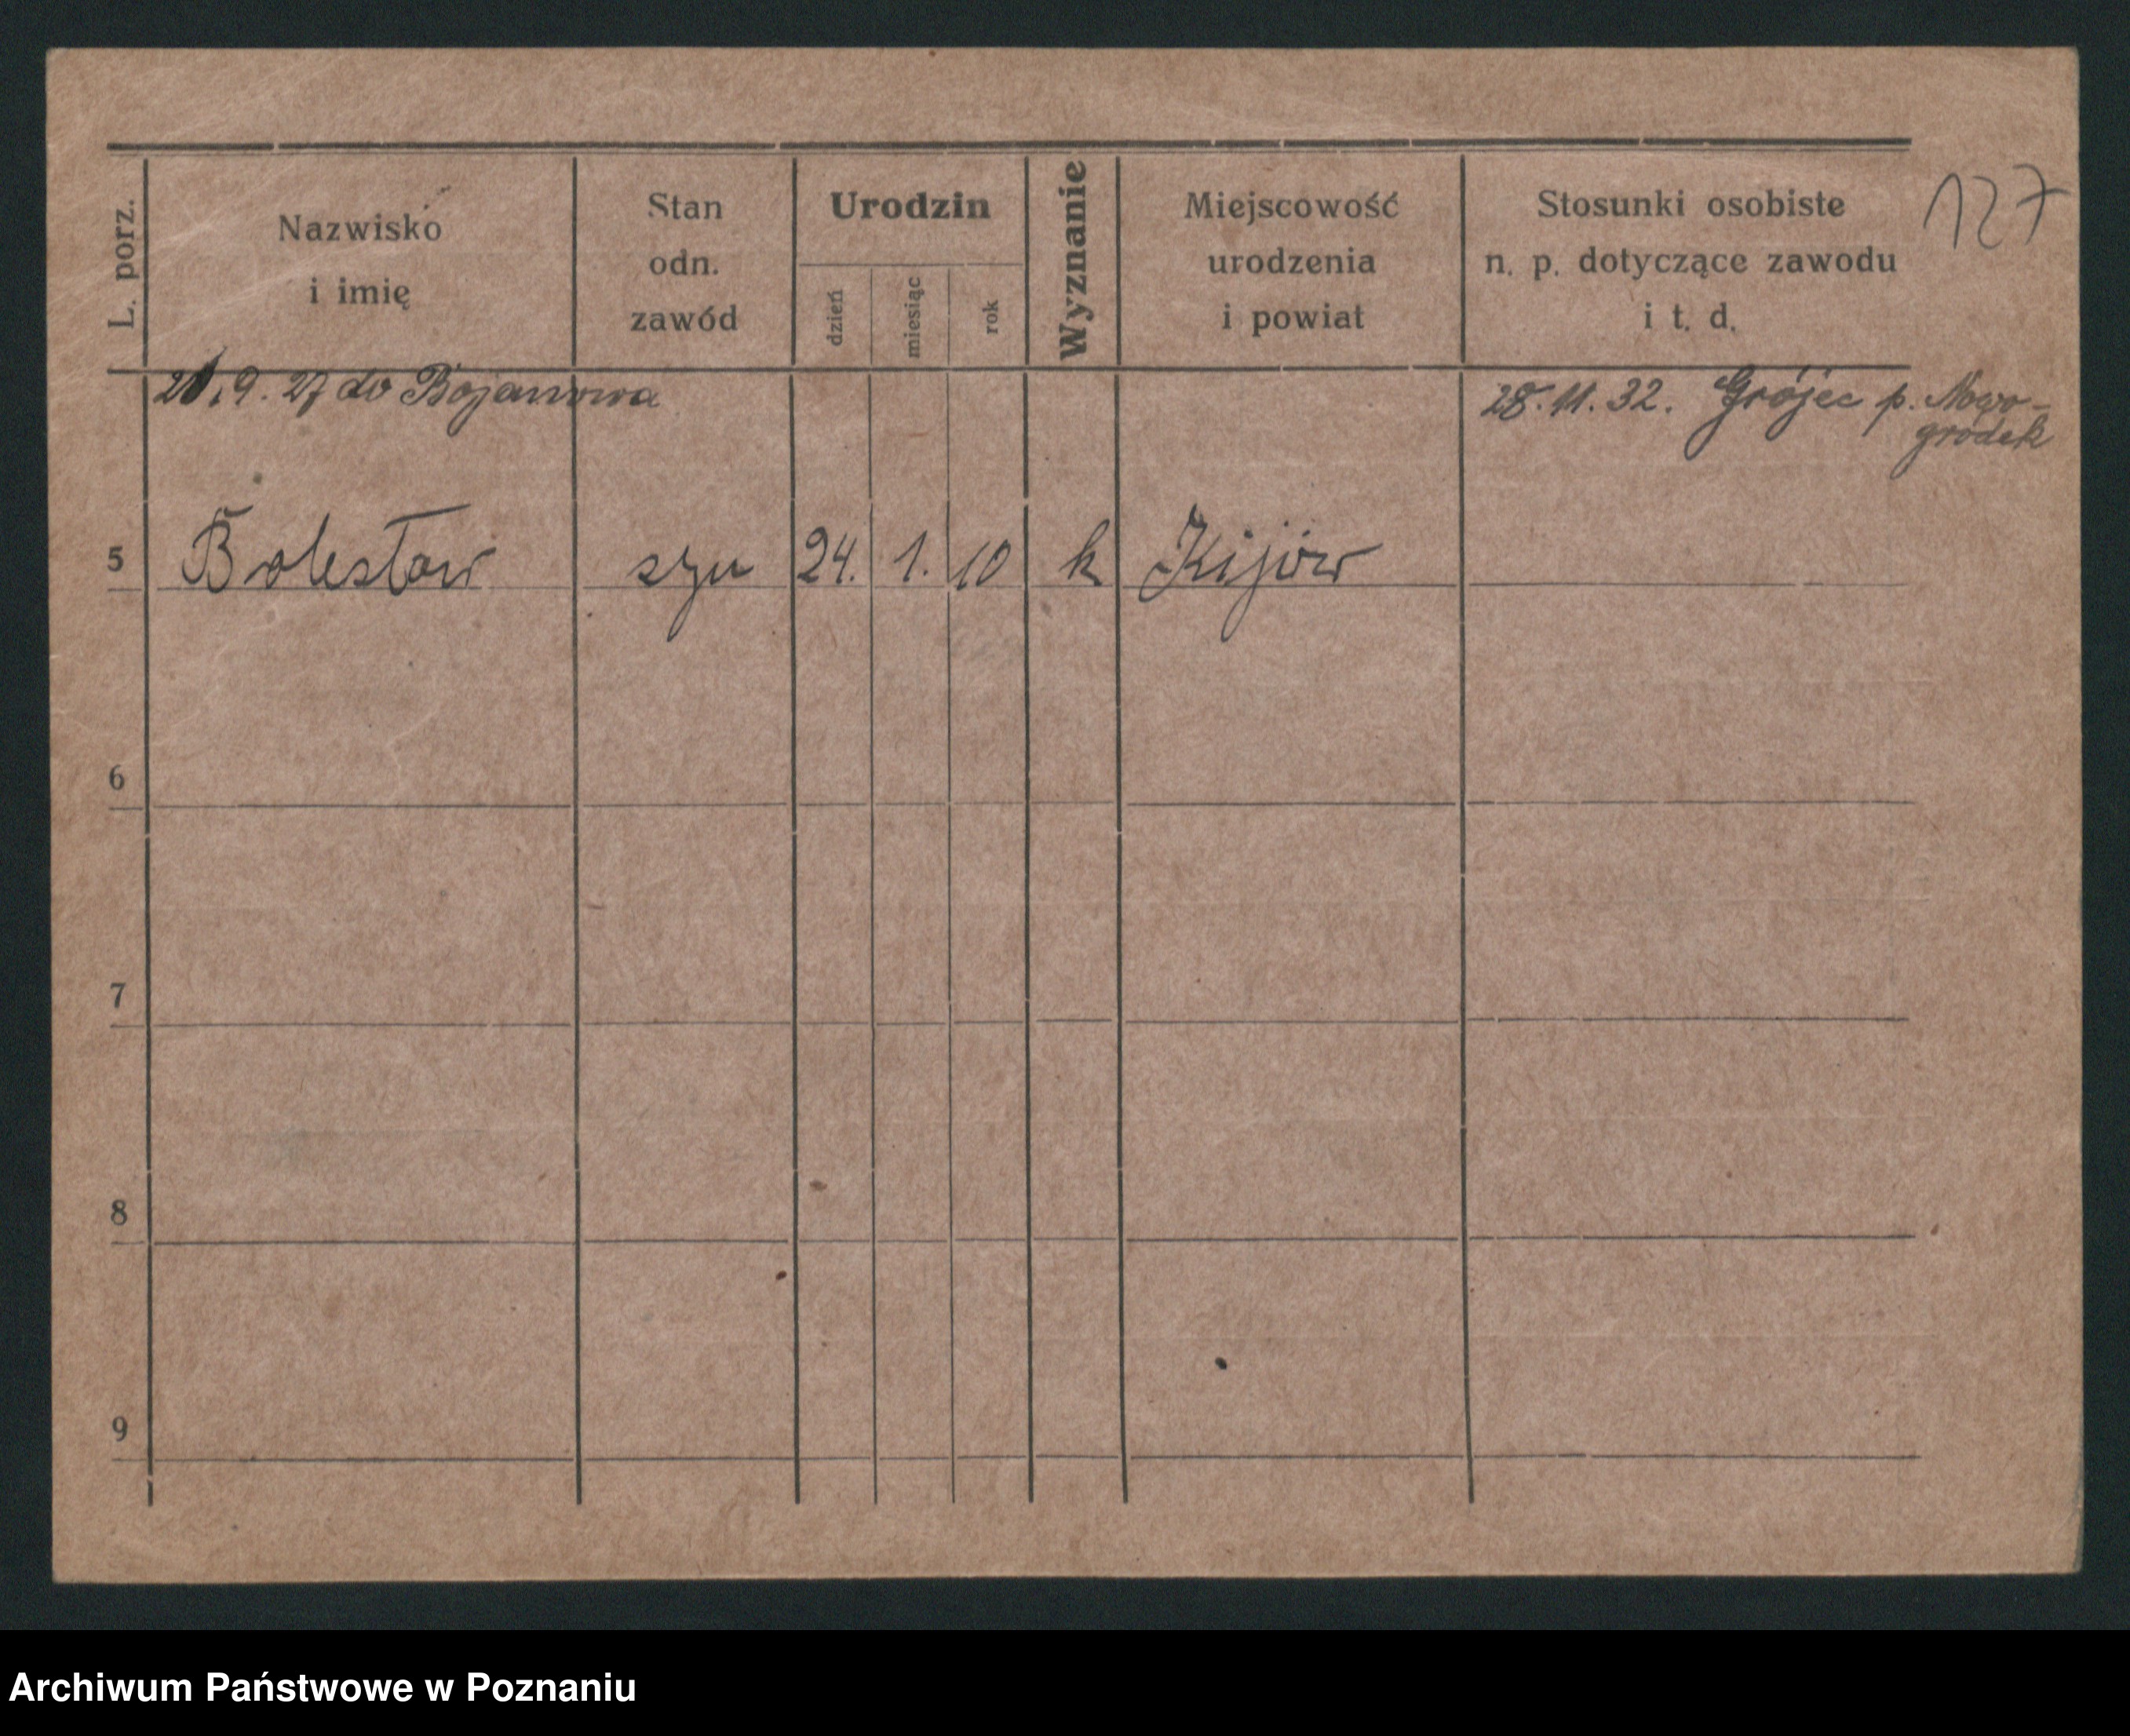 127
L. porz.
Nazwisko
i imię
Stan
odn.
zawód
Urodzin
dzień
miesiąc
rok
Wyznanie
Miejscowość
urodzenia
i powiat
Stosunki osobiste
n. p. dotyczące zawodu
i t. d.
9. 27 do Bojanowa
28. 11. 32. Grójec p. Nowo-
gródek
5 Bolesław syn 24. 1. 10 k Kijów
6
7
8
9
Archiwum Państwowe w Poznaniu